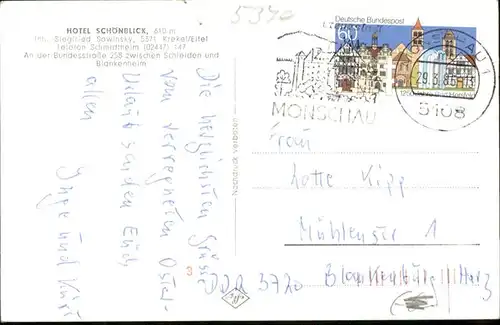 HOTEL SCHÖNBLICK, 610 m
Inh. Siegfried Sawinsky, 5371 Krekel/Eifel
Telefon Schmidtheim (02447) 147
An der Bundesstraße 258 zwischen Schleiden und
Blankenheim
Die herzlichsten Grüße
vom verregneten Oster-
Urlaub senden Euch
allen
Inge und Kurt
Nachdruck verboten
5370
Deutsche Bundespost
60
MONSCHAU
MONSCHAU 1
29.3.86-13
5108
Frau
Lotte Kipp
Mühlenstr 1
DDR 3720 Blankenburg / Harz
3